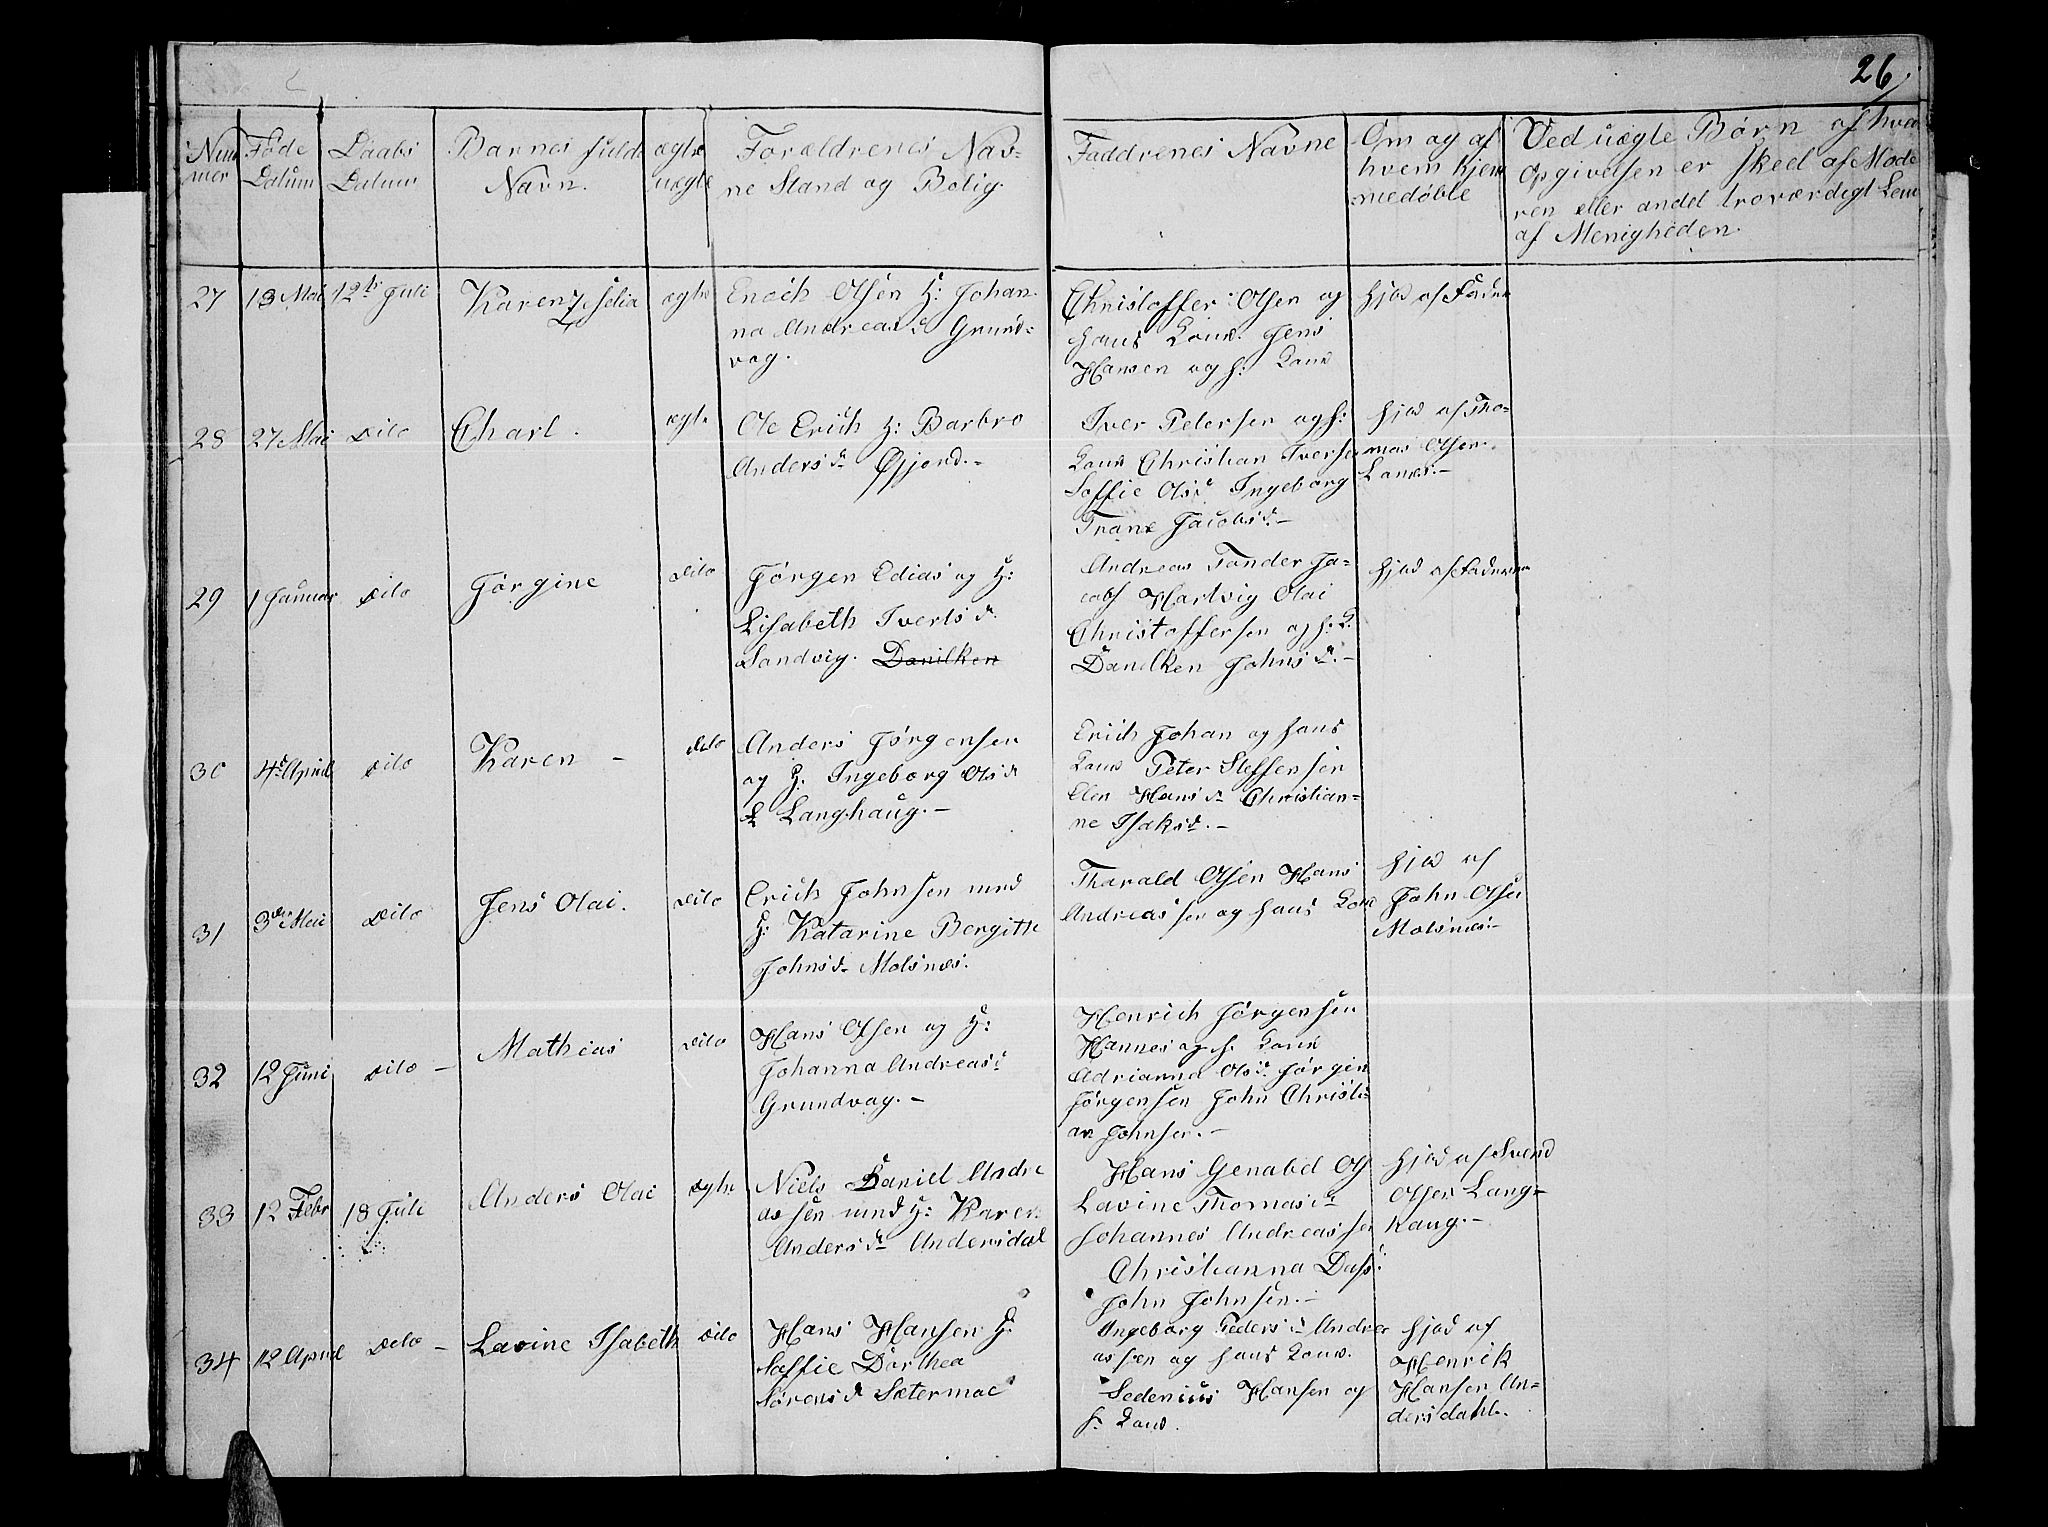 26
Num
mer
Føde
Datum
Daabs
Datum
Barnes fulde
Navn.
ægte
uægte
Forældrenes Nav=
ne Stand og Bolig.
Faddrenes Navne
Om og af
hvem hjem
medøbte
Ved uægte Børn af hvem
Opgivelsen er skeed af Mode
ren eller andet troværdigt Lem
af Menigheden.
27
13 Mai
12te Juli
Karen
ægte
Enoch Olsen H: Johan
na Andreasd Grund=
vog.
Christoffer Olsen og
hans Kone. Jens
Hansen og h: Kone
hjed af Faderen
28
27 Mai
dito
Charl.
ægte
Ole Erich H: Barbro
Andersd. Øfjord.-
Iver Petersen og h:
Kone Christian Iversen
Soffie Olsd Ingeborg
Trane Jacobsd.-
hjed af Tho-
mas Olsen
Lanes.-
29
1 Januar
dito
Jørgine
dito
Jørgen Edias og H:
Lisabeth Ivertsd.
Sandvig. Danilken
Andreas Tønder Ja=
cobs Hartvig Olai
Christoffersen og h: K.
Danilken Johnsd.-
hjed af Faderen
30
4de April
dito
Karen -
dito
Anders Jørgensen
og H. Ingeborg Olsd
Langhaug.-
Erich Johan og hans
Kone Peter Steffensen
Elen Hansd Christian=
ne Isaksd.-
31
3die Mai
dito
Jens Olai.
dito
Erich Johnsen med
H: Katarine Bergitte
Johnsd. Molsnæs.
Tharald Olsen Hans
Andreassen og hans Kone
hjed af
John Olsen
Molsnæs.-
32
12 Juni
dito -
Mathias
dito
Hans Olsen og H:
Johanna Andreasd
Grundvog.-
Henrich Jørgensen
Hannes og h. Kone
Adrianna Olsd. Jørgen
Jørgensen John Christi
an Johnsen.-
33
12 Febr
18 Juli
Anders Olai
ægte
Niels Daniel Andre
assen med H: Karen
Andersd. Andersdal
Hans Genabel Ols
Lavine Thomasd
Johannes Andreassen
Christianna Dass:
John Johnsen.-
hjed af Svend
Olsen Lang=
haug.-
34
12 April
dito -
Lavine Isabeth
dito
Hans Hansen H.
Soffie Dorthea
Sørensd Sætermoe
Ingeborg Pedersd Andre
assen og hans Kone.
Sedenius Hansen og
h. Kone.
hjed af
Henrik
Hansen An=
dersdahl.